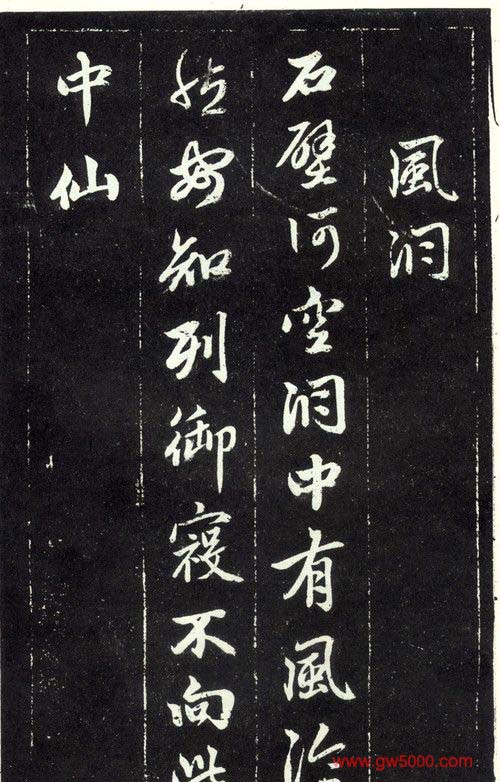 風洞
石壁何空洞中有風泠
然安知列御寇不向此
中仙
www.gw5000.com